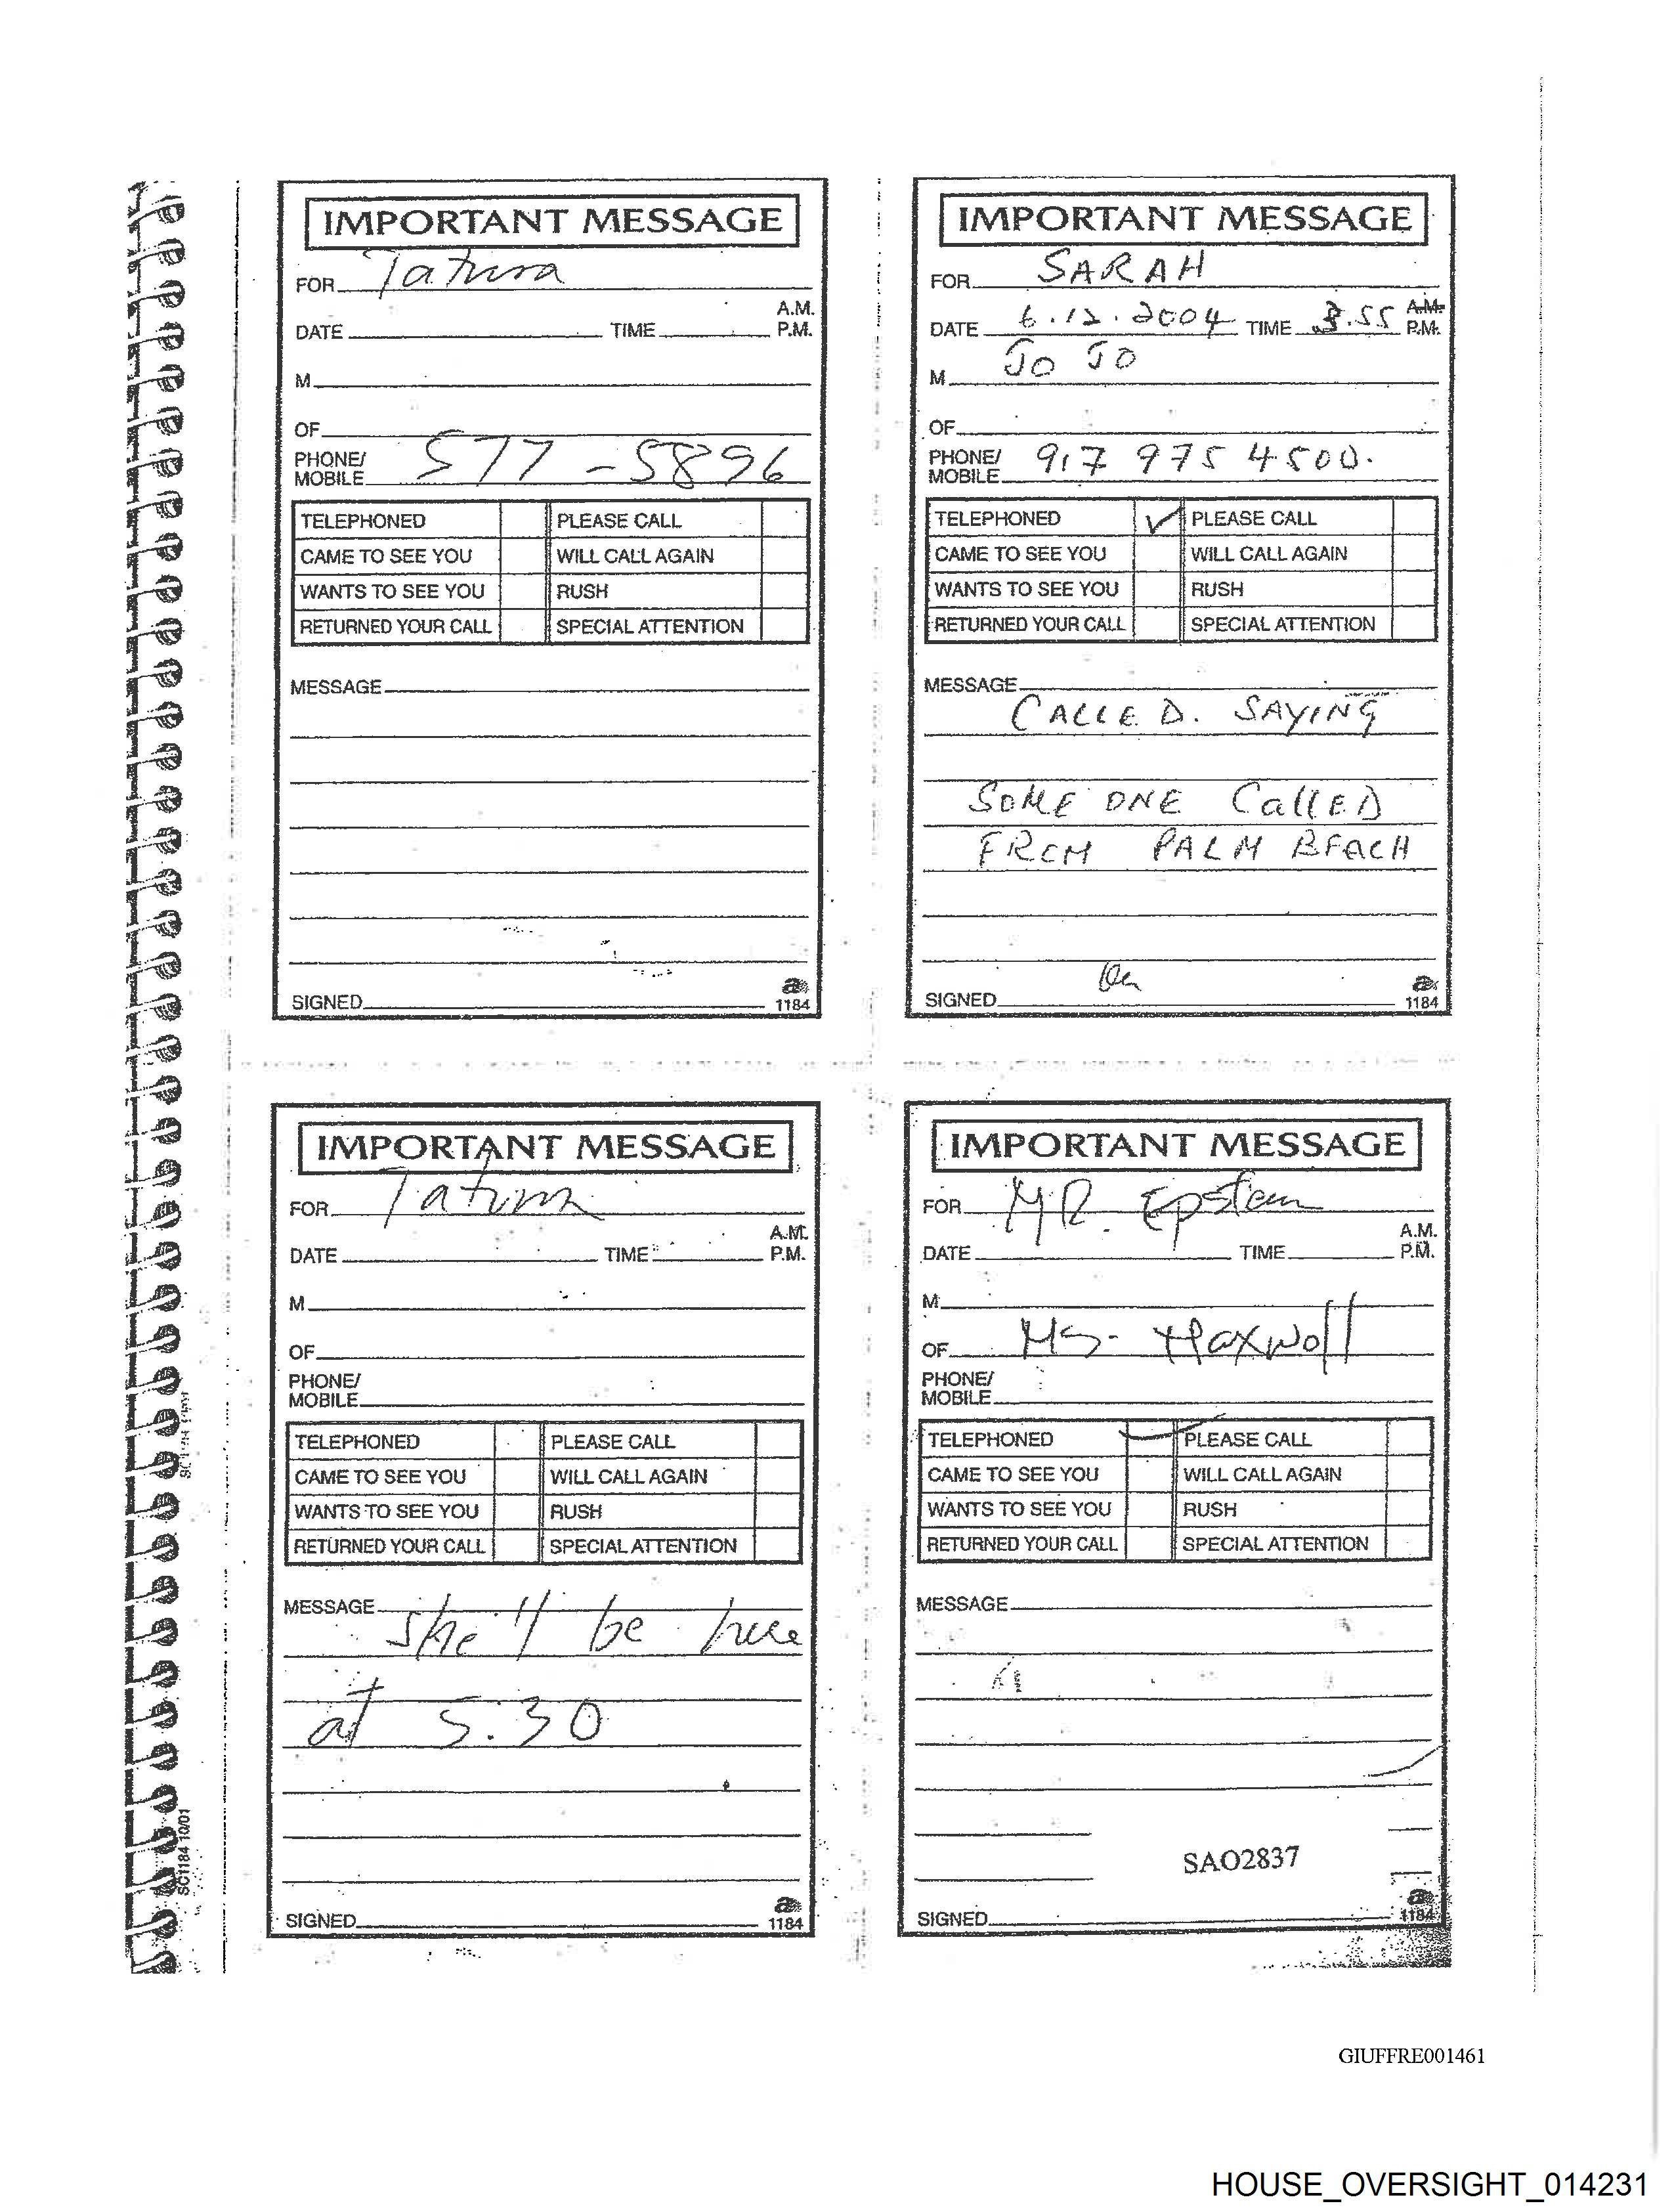 IMPORTANT MESSAGE
FOR
A.M.
DATE TIME P.M.
M
OF
PHONE/
MOBILE 577-5896
TELEPHONED PLEASE CALL
CAME TO SEE YOU WILL CALL AGAIN
WANTS TO SEE YOU RUSH
RETURNED YOUR CALL SPECIAL ATTENTION
MESSAGE
SIGNED
1184
IMPORTANT MESSAGE
FOR SARAH
A.M.
DATE 6.12.2004 TIME 3.55 P.M.
M JO JO
OF
PHONE/
MOBILE 917 975 4500.
TELEPHONED ✓ PLEASE CALL
CAME TO SEE YOU WILL CALL AGAIN
WANTS TO SEE YOU RUSH
RETURNED YOUR CALL SPECIAL ATTENTION
MESSAGE
CALLED. SAYING
SOME ONE CallED
FROM PALM BEaCH
SIGNED
1184
IMPORTANT MESSAGE
FOR
A.M.
DATE TIME P.M.
M
OF
PHONE/
MOBILE
TELEPHONED PLEASE CALL
CAME TO SEE YOU WILL CALL AGAIN
WANTS TO SEE YOU RUSH
RETURNED YOUR CALL SPECIAL ATTENTION
MESSAGE she'll be here
at 5:30
SIGNED
1184
SC1184 10/01
IMPORTANT MESSAGE
FOR MR. Epstein
A.M.
DATE TIME P.M.
M
OF Ms. Maxwell
PHONE/
MOBILE
TELEPHONED ✓ PLEASE CALL
CAME TO SEE YOU WILL CALL AGAIN
WANTS TO SEE YOU RUSH
RETURNED YOUR CALL SPECIAL ATTENTION
MESSAGE
SAO2837
SIGNED
1184
GIUFFRE001461
HOUSE_OVERSIGHT_014231